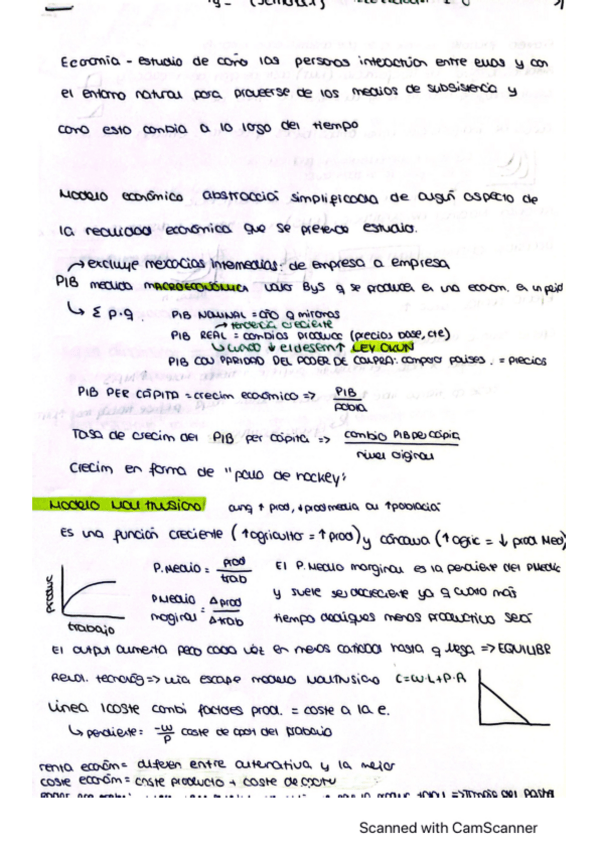 Economía - estudio de como las personas interactúan entre ellas y con
el entorno natural para proveerse de los medios de subsistencia y
como esto cambia a lo largo del tiempo
Modelo económico abstracción simplificada de algún aspecto de
la realidad económica que se pretende estudiar.
→ excluye intermedias: de empresa a empresa
PIB medida MACROECONÓMICA valor ByS q se producen en una econom. en un
↳ Σ p·q. PIB NOMINAL = año q miramos
→ tendencia creciente
PIB REAL = cambios produce (precios base, cte)
↳ cuando ↓ el desem ↑ LEY OKUN
PIB CON PARIDAD DEL PODER DE COMPRA: comparar países. = precios
PIB PER CÁPITA = crecim económico => PIB / pobla
Tasa de crecim del PIB per cápita => cambio PIB per cápita / nivel original
Crecim en forma de "palo de hockey"
MODELO MALTHUSIANO aunq ↑ prod, ↓ prod media cu ↑ población
Es una función creciente (↑agricultor = ↑ prod) y cóncava (↑ agric = ↓ prod Med)
P.Medio = prod / trab El P. Medio marginal es la pendiente del PMedio
PMedio marginal = Δprod / Δtrab y suele ser decreciente ya q cuanto más
tiempo dediques menos productivo será
produc
trabajo
El output aumenta pero cada vez en menos cantidad hasta q llega => EQUILIBR
tecnológ => vía escape modelo Malthusiano C=W·L+P·R
Línea Icoste combi factores prod. = coste a la e.
↳ pendiente: -w/p coste de oport del trabajo
renta económ = difieren entre alternativa y la mejor
coste económ = coste producto + coste de oportu
Scanned with CamScanner